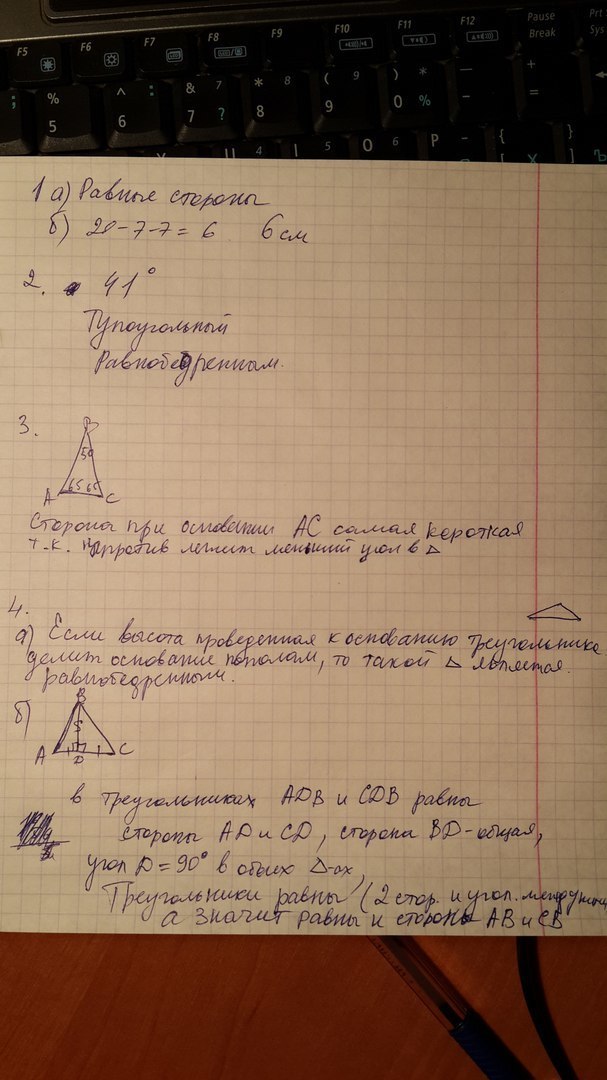 F5 F6 F7 F8 F9 F10 F11 F12 Pause Break Prt Sys
% 5 ^ 6 & 7 ? * 8 ( 9 ) 0 %
1 а) Равные стороны
б) 20-7-7=6 6 см
2. 41°
Тупоугольный
Равнобедренным.
3.
B
50
A 65 65 C
Сторона при основании AC самая короткая
т.к. напротив лежит меньший угол в △
4.
а) Если высота проведенная к основанию треугольника
делит основание пополам, то такой △ является
равнобедренным.
б)
B
A D C
в треугольниках ADB и CDB равны
стороны AD и CD, сторона BD-общая,
угол D=90° в обоих △-ах,
Треугольники равны (2 стор. и угол. между ними
а значит равны и стороны AB и CB